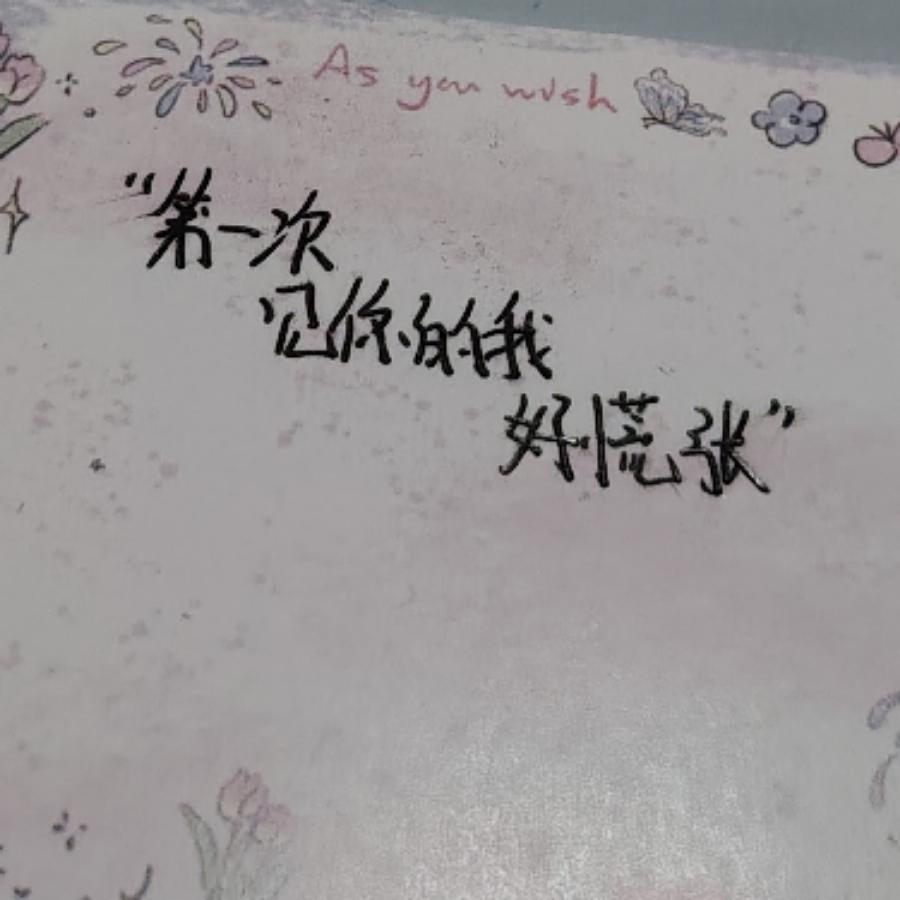 As you wish
“第一次
见你的我
好慌张”